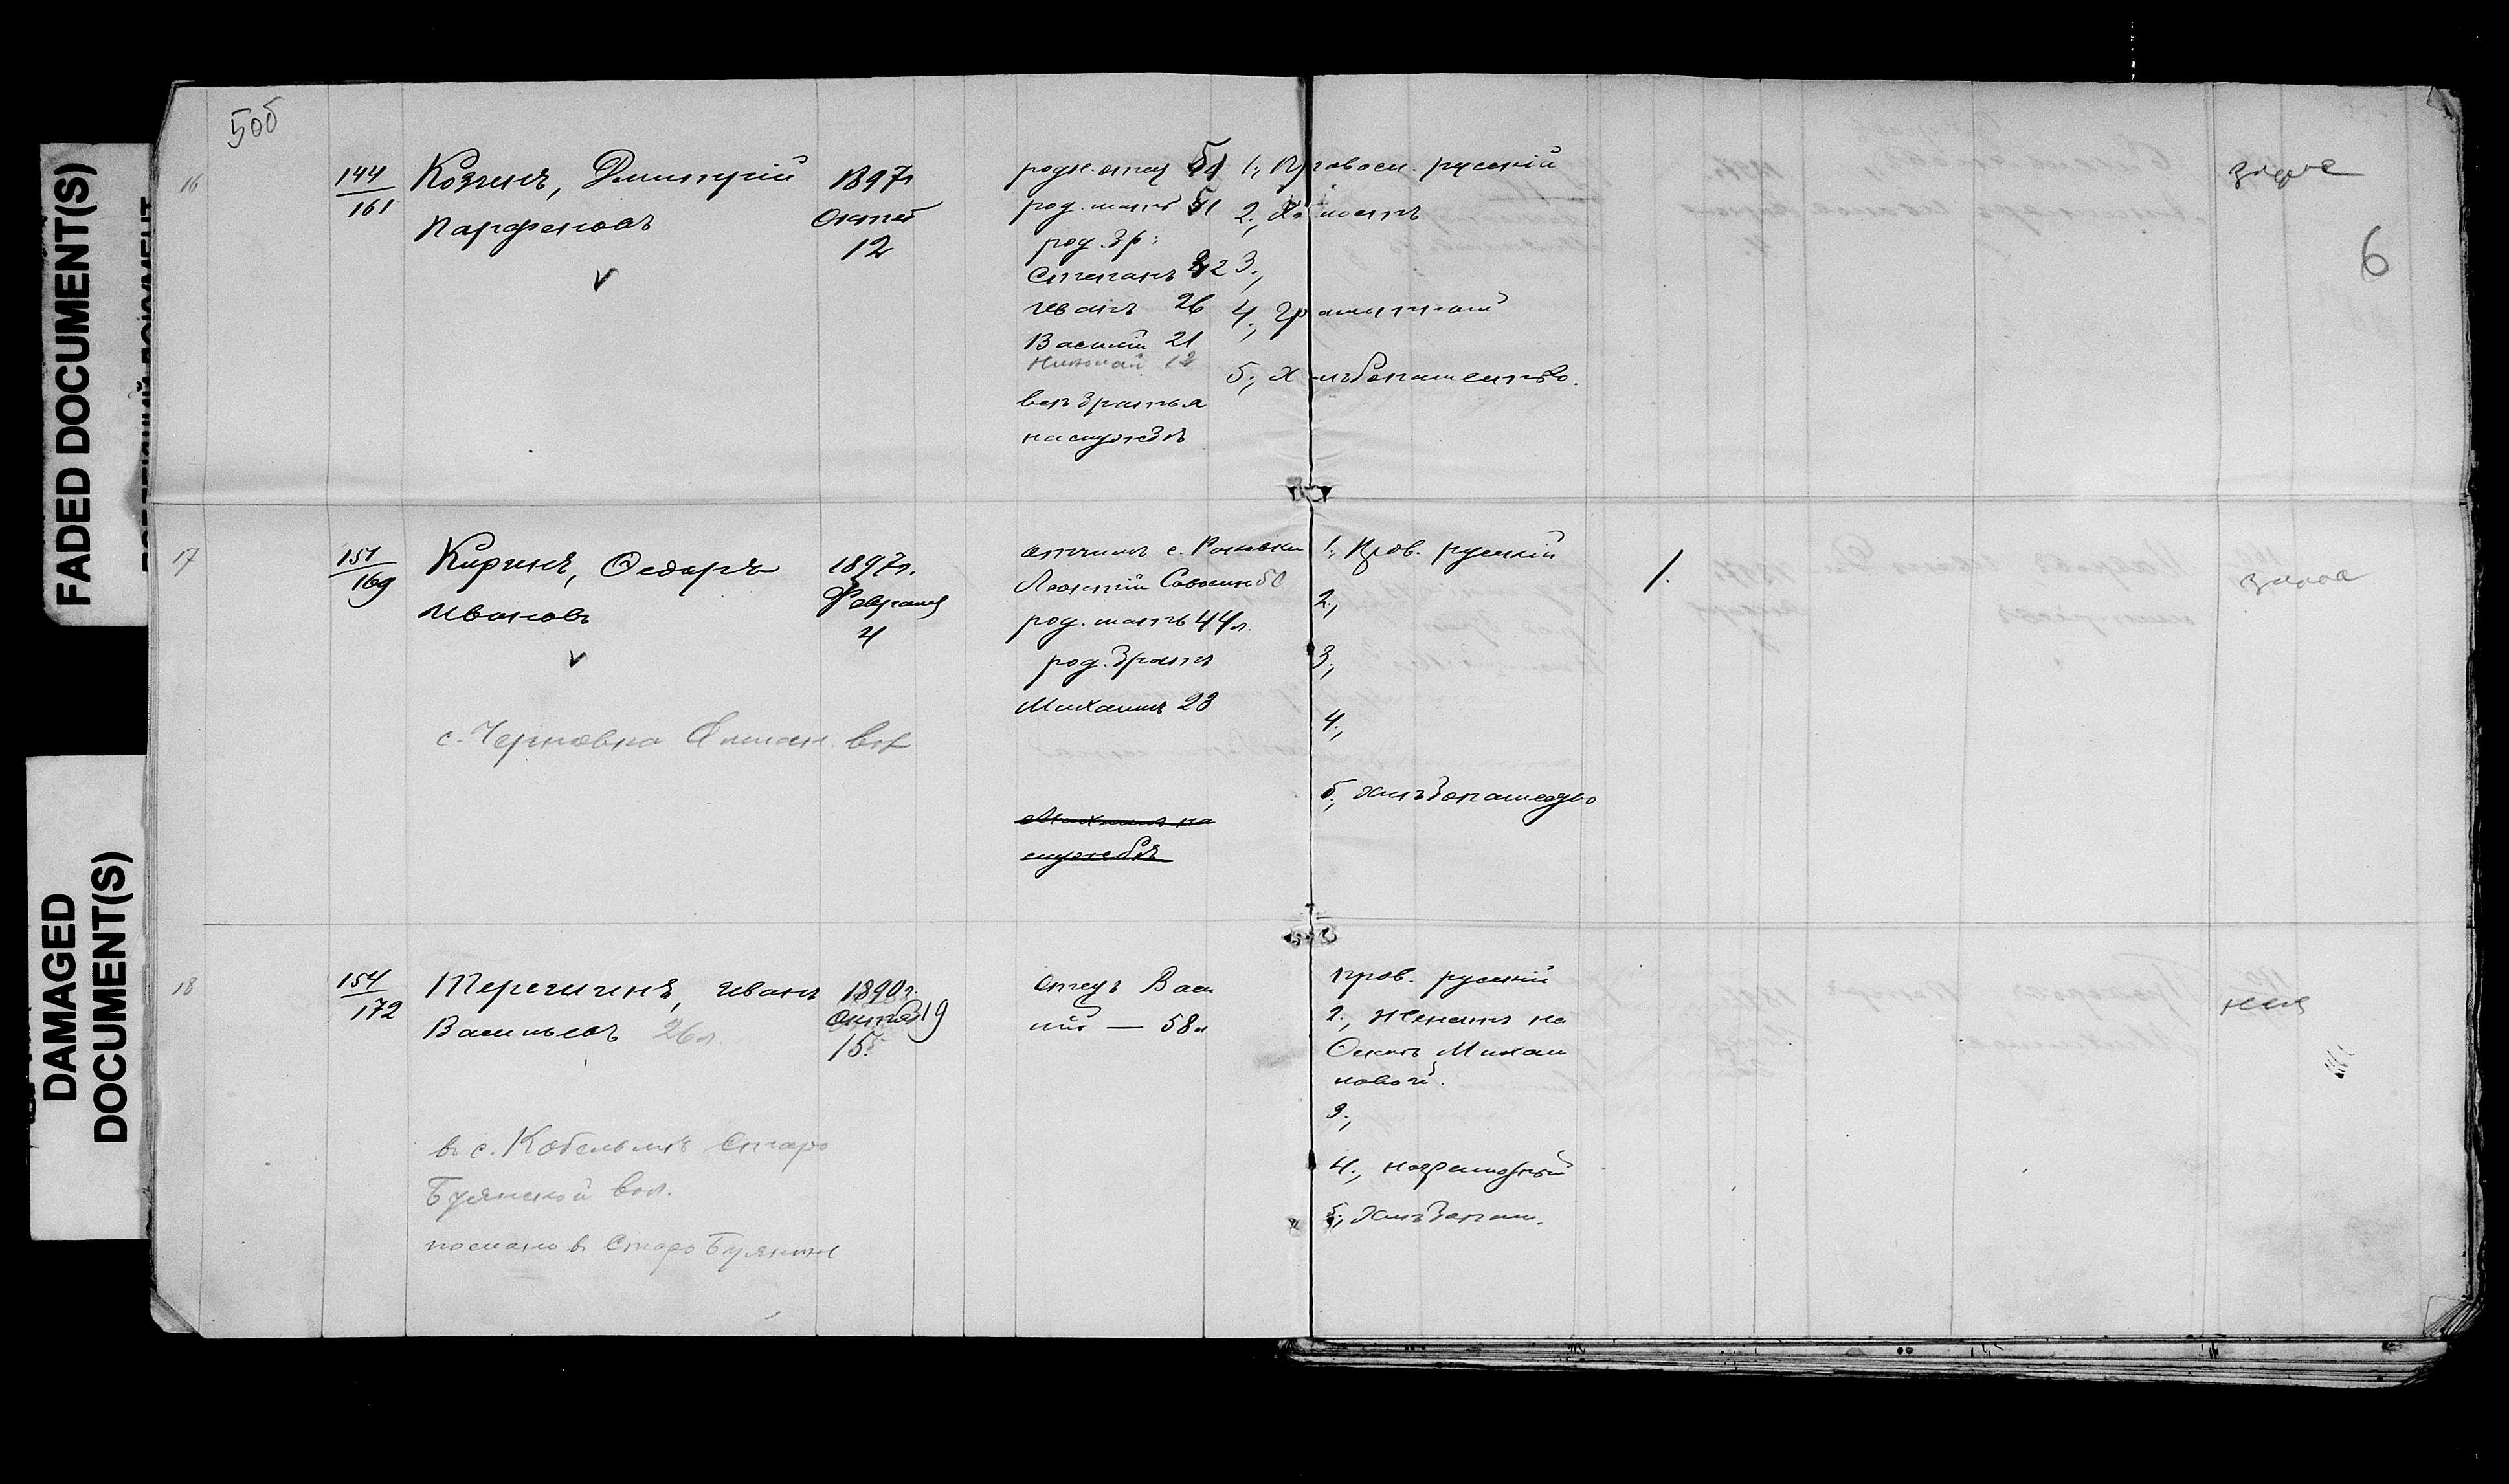 FADED DOCUMENT(S)
DAMAGED
DOCUMENT(S)
5об
6
16
144
161
Козинъ, Дмитрій
Парфеновъ
1897г
Октяб
12
родн. отец 51
род. мать 51
род. бр:
Степанъ 32
Иванъ 26
Василій 21
Николай 12
всѣ братья
на службѣ
1., Правосл. русскій
2., Холостъ
3.,
4., Грамотный
5., Хлѣбопашество.
17
151
169
Киринъ, Ѳедоръ
Ивановъ
с. Черновка вол
1897г.
Февраля
4
отчимъ с. Раковки
Леонтій 50
род. мать 44л.
род. братъ
Михаилъ 23
Михаилъ на
службѣ
1., Прав. русскій
2.,
3.,
4.,
5., Хлѣбопашество
1.
18
154
172
Иванъ
Васильевъ 26л.
1890г.
Октяб 19
15.
в с. Кобельмѣ Старо
Буянской вол.
послано в Старо Буянское
отецъ Васи
лій — 58л
прав. русскій
2., Женатъ на
Михаи
ловой.
3.,
4., неграмотный
5., Хлѣбопаш.